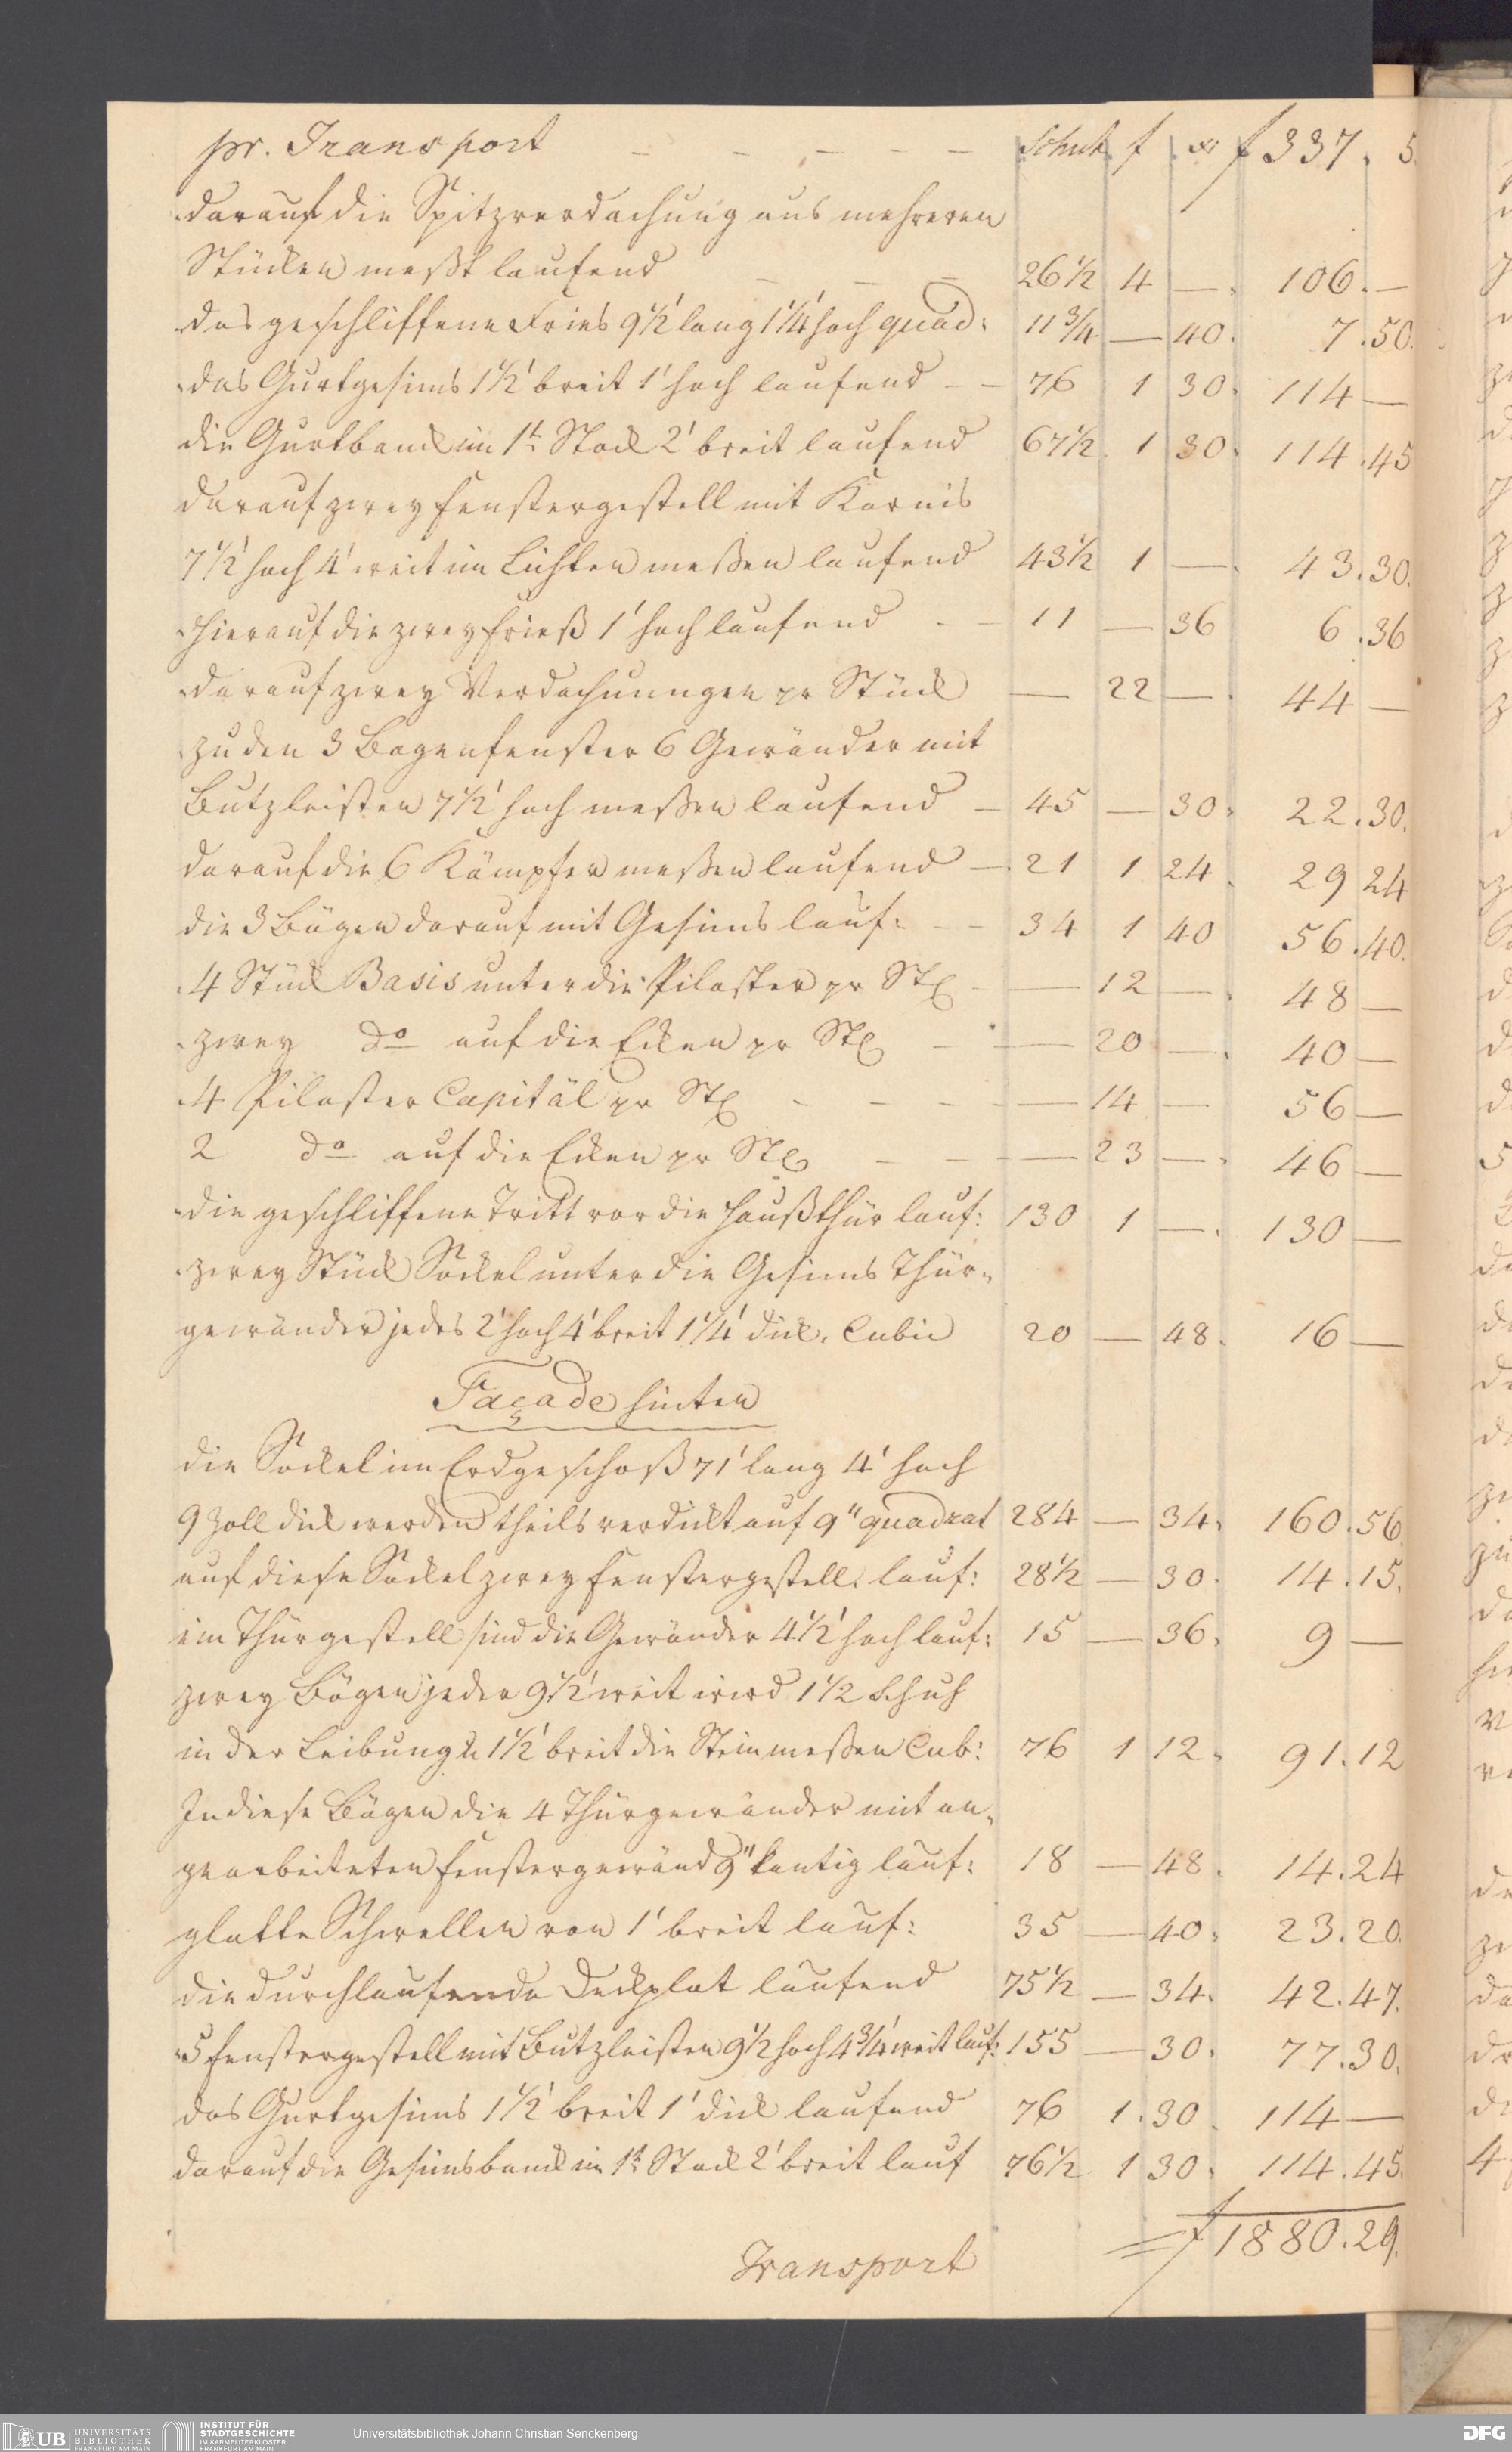 pr. Transport — — — — — Schuh f xr f 337. 5
darauf die Spitzverdachung aus mehreren
Stücken meßt laufend — — — 26½ 4 — 106. —
das geschliffene Fries 9½' lang 1¼' hoch quad: 11¾ — 40. 7. 50.
das Gurtgesims 1½' breit 1' hoch laufend — — 76 1 30. 114 —
die Gurtbanck im 1t Stock 2' breit laufend 67½ 1 30. 114. 45
darauf zwey Fenstergestell mit Karnis
7½' hoch 4' weit im Lichten meßen laufend 43½ 1 — 43. 30.
hierauf die zwey Frieß 1' hoch laufend — — 11 — 36 6. 36
darauf zwey Verdachunngen pr Stück — 22 — 44 —
zu den 3 Bogenfenster 6 Gewänder mit
Butzleisten 7½' hoch meßen laufend — 45 — 30. 22. 30.
darauf die 6 Kämpfer meßen laufend — 21 1 24. 29 24
die 3 Bögen darauf mit Gesims lauf: — — 34 1 40 56. 40.
4 Stück Basis unter die Pilaster pr St — — 12 — 48 —
zwey do auf die Ecken pr St — — 20 — 40 —
4 Pilaster Capitäl pr St — — — — 14 — 56 —
2 do auf die Ecken pr St — — — 23 — 46 —
die geschliffene Tritt vor die Haußthür lauf: 130 1 — 130 —
zwey Stück Sockel unter die Gesims Thür-
gewänder jedes 2' hoch 4' breit 1¼' dick, Cubic 20 — 48. 16 —
Façade hinten
die Sockel im Erdgeschoß 71' lang 4' hoch
9 Zoll dick werden theils verdickt auf 9" quadrat 284 — 34. 160. 56.
auf diese Sockel zwey Fenstergestell. lauf: 28½ — 30. 14. 15.
ein Thürgestell sind die Gewänder 4½' hoch lauf: 15 — 36. 9 —
zwey Bögen jeder 9½' weit wird 1½ Schuh
in der Leibung u 1½' breit die Stein meßen Cub: 76 1 12. 91. 12
In diese Bögen die 4 Thürgewänder mit an-
gearbeiteten Fenstergewänd 9" kantig lauf: 18 — 48. 14. 24
glatte Schwellen von 1' breit lauf: 35 — 40. 23. 20.
die durchlaufende Deckplat laufend 75½ — 34. 42. 47.
5 Fenstergestell mit Butzleisten 9½ hoch 4¾' weit lauf: 155 — 30. 77. 30.
das Gurtgesims 1½' breit 1' dick laufend 76 1. 30 114 —
darauf die Gesimsbanck im 1t Stock 2' breit lauf 76½ 1 30. 114. 45.
Transport = f 1880. 29.
UB UNIVERSITÄTS BIBLIOTHEK FRANKFURT AM MAIN
INSTITUT FÜR STADTGESCHICHTE IM KARMELITERKLOSTER FRANKFURT AM MAIN
Universitätsbibliothek Johann Christian Senckenberg
DFG